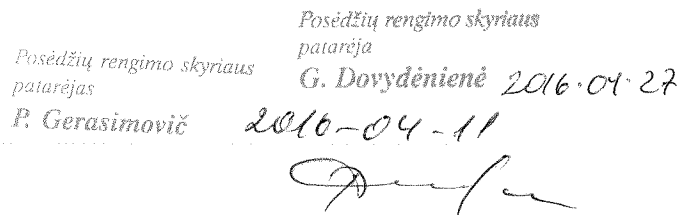 Posėdžių rengimo skyriaus
patarėja
G. Dovydėnienė 2016.04.27
Posėdžių rengimo skyriaus
patarėjas
P. Gerasimovič 2016-04-11